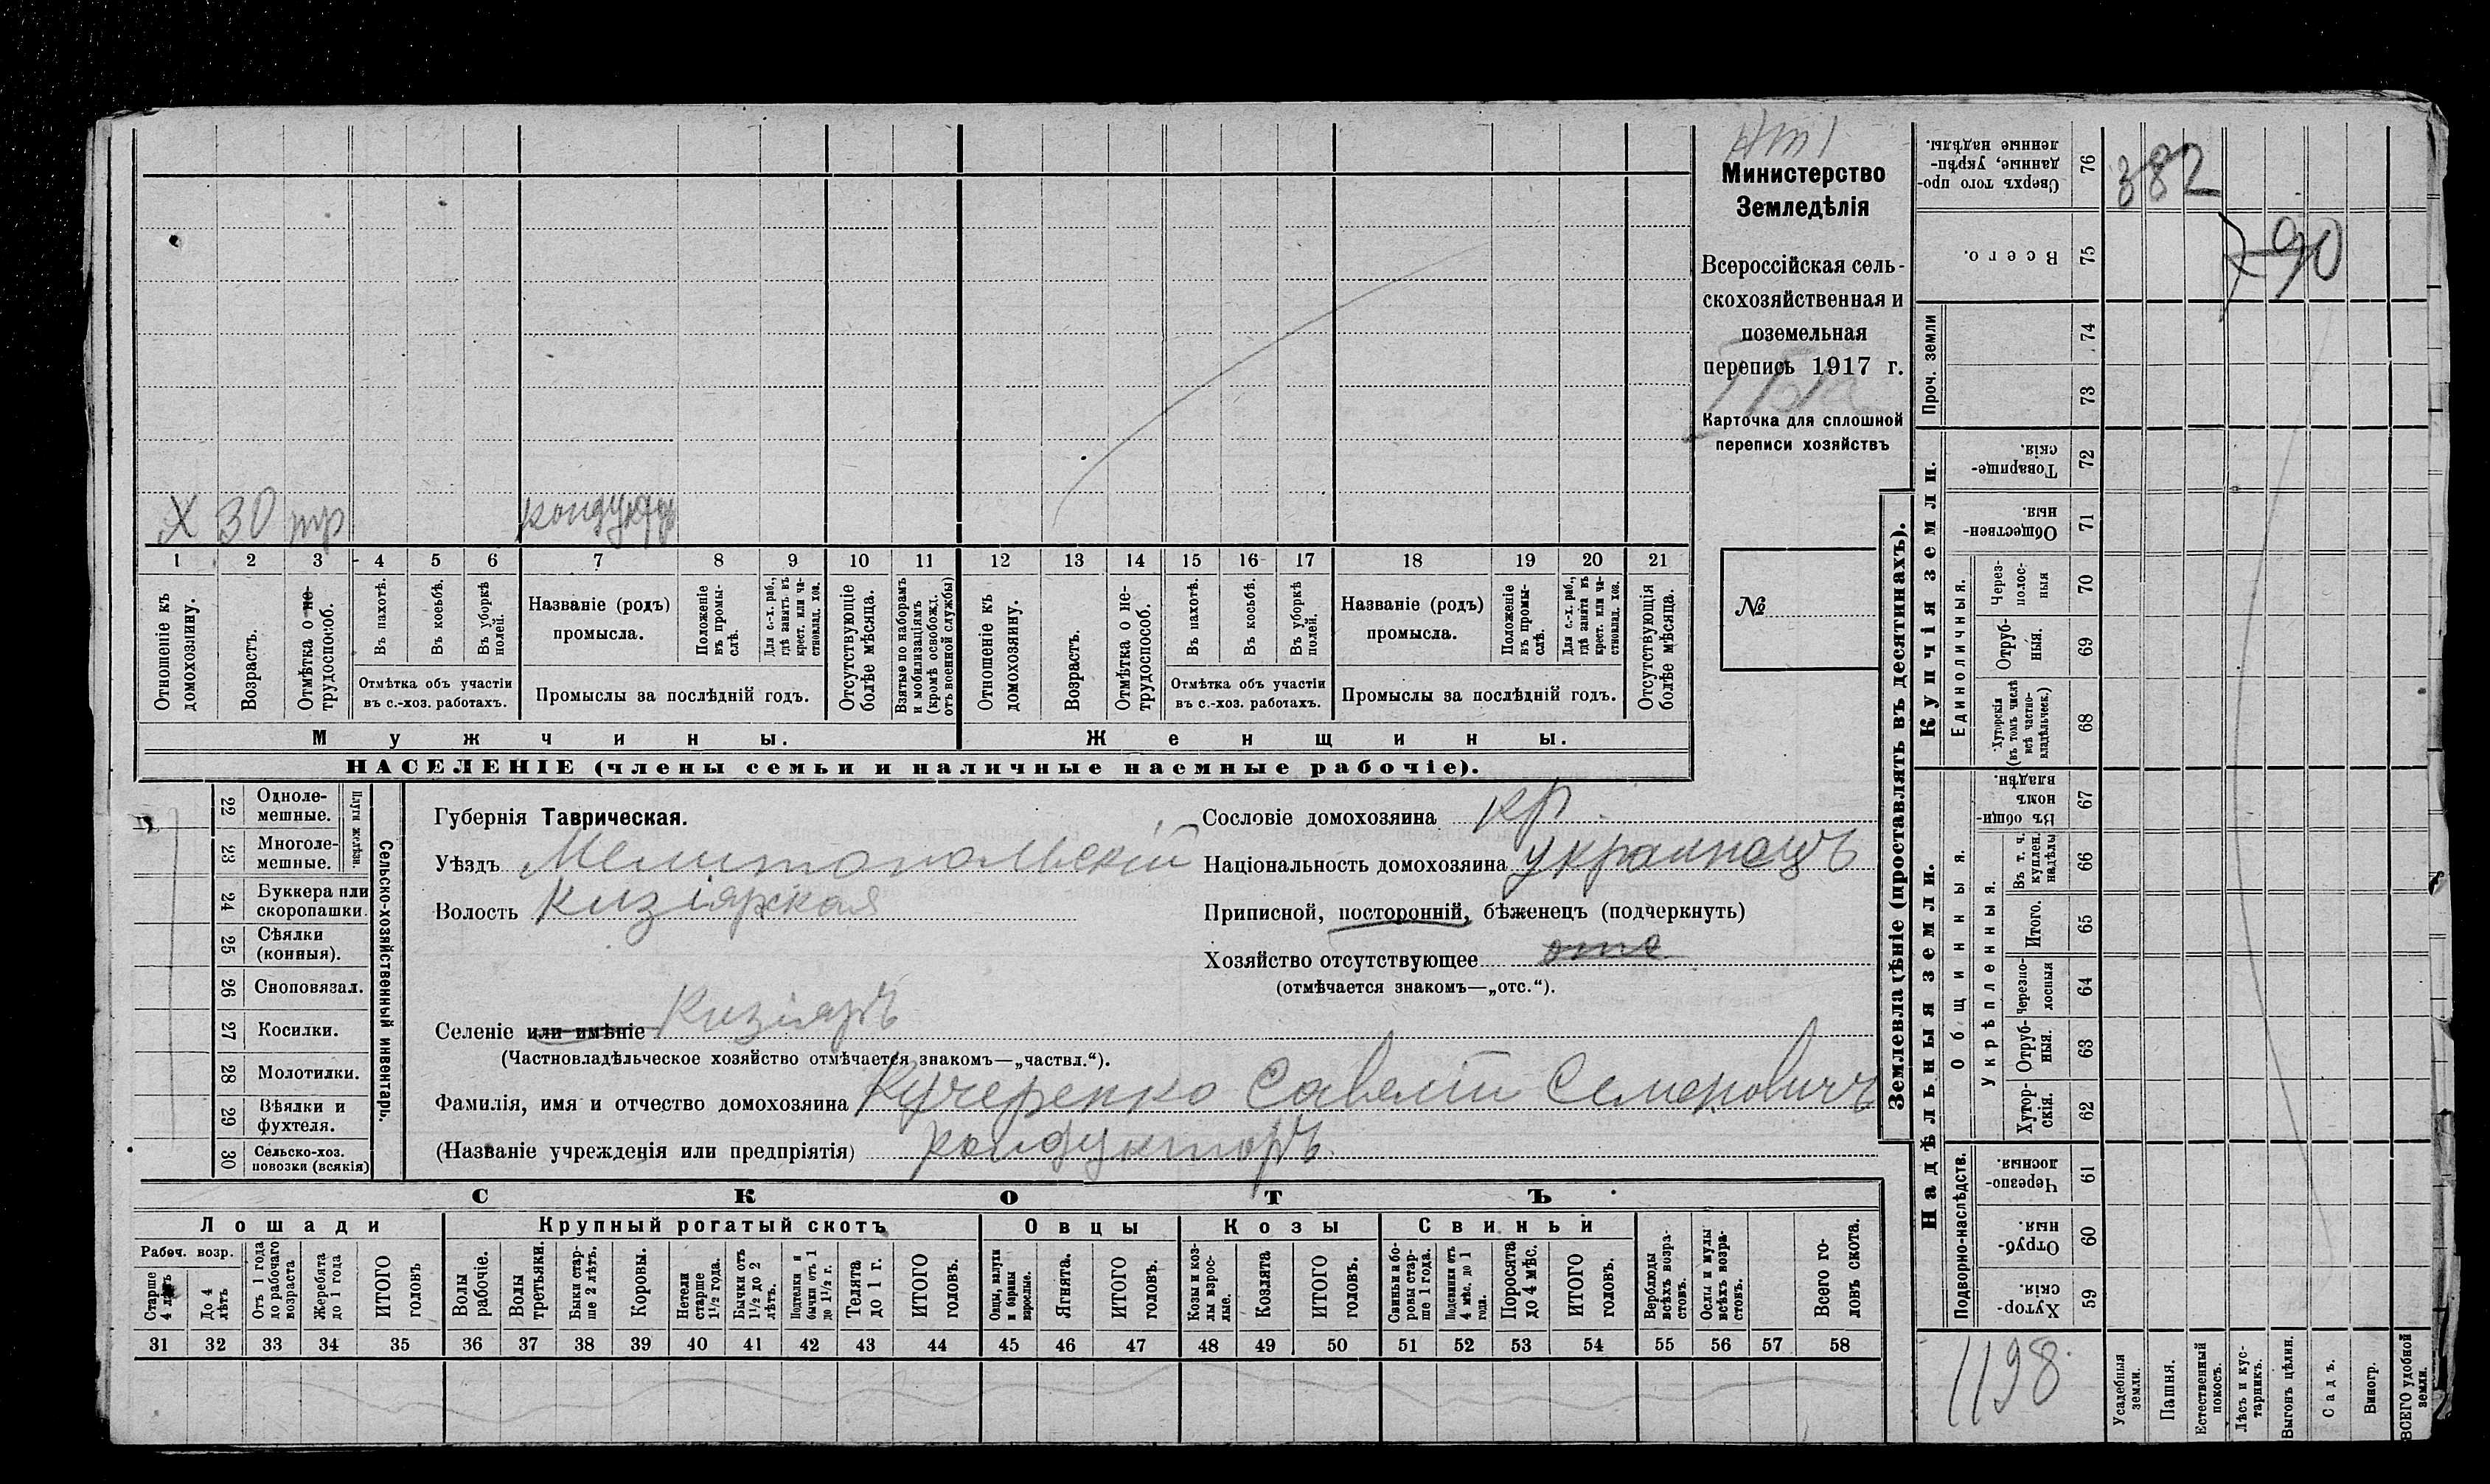 Министерство
Земледѣлія
Всероссійская сель-
скохозяйственная и
поземельная
перепись 1917 г.
Карточка для сплошной
переписи хозяйствъ
№
Х 30 тр кондукт
1 2 3 4 5 6 7 8 9 10 11 12 13 14 15 16 17 18 19 20 21
Отношеніе къ домохозяину.
Возрастъ.
Отмѣтка о не-
трудоспособ.
Въ пахотѣ.
Въ косьбѣ.
Въ уборкѣ
полей.
Отмѣтка объ участіи
въ с.-хоз. работахъ.
Названіе (родъ)
промысла.
Положеніе
въ промы-
слѣ.
Для с.-х. раб.,
гдѣ занятъ въ
крест. или ча-
стновлад. хоз.
Промыслы за послѣдній годъ.
Отсутствующіе
болѣе мѣсяца.
Взятые по наборамъ
и мобилизаціямъ
(кромѣ освобожд.
отъ военной службы)
Отношеніе къ
домохозяину.
Возрастъ.
Отмѣтка о не-
трудоспособ.
Въ пахотѣ.
Въ косьбѣ.
Въ уборкѣ
полей.
Отмѣтка объ участіи
въ с.-хоз. работахъ.
Названіе (родъ)
промысла.
Положеніе
въ промы-
слѣ.
Для с.-х. раб.,
гдѣ занята въ
крест. или ча-
стновлад. хоз.
Промыслы за послѣдній годъ.
Отсутствующія
болѣе мѣсяца.
Мужчины.
Женщины.
НАСЕЛЕНІЕ (члены семьи и наличные наемные рабочіе).
22 Одноле-
мешные.
23 Многоле-
мешные.
Плуги желѣзн.
24 Буккера или
скоропашки.
25 Сѣялки
(конныя).
26 Сноповязал.
27 Косилки.
28 Молотилки.
29 Вѣялки и
фухтеля.
30 Сельско-хоз.
повозки (всякія)
Сельско-хозяйственный инвентарь.
Губернія Таврическая.
Уѣздъ Мелитопольскій
Волость Кизіярская
Селеніе или имѣніе Кизіяръ
(Частновладѣльческое хозяйство отмѣчается знакомъ—„частвл.“).
Фамилія, имя и отчество домохозяина Кучеренко Савелій Семеновичъ
(Названіе учрежденія или предпріятія) кондукторъ.
Сословіе домохозяина кр.
Національность домохозяина украинецъ
Приписной, посторонній, бѣженецъ (подчеркнуть)
Хозяйство отсутствующее отс.
(отмѣчается знакомъ—„отс.“).
СКОТЪ
Лошади
Крупный рогатый скотъ
Овцы
Козы
Свиньи
Рабоч. возр.
Старше
4 лѣтъ
До 4
лѣтъ
Отъ 1 года
до рабочаго
возраста
Жеребята
до 1 года
ИТОГО
головъ
Волы
рабочіе.
Волы
третьяки.
Быки стар-
ше 2 лѣтъ.
Коровы.
Нетели
старше
1½ года.
Бычки отъ
1½ до 2
лѣтъ.
Подтелки и
бычки отъ 1
до 1½ г.
Телята
до 1 г.
ИТОГО
головъ.
Овцы, валухи
и бараны
взрослые.
Ягнята.
ИТОГО
головъ.
Козы и коз-
лы взрос-
лые.
Козлята
ИТОГО
головъ.
Свиньи и бо-
ровы стар-
ше 1 года.
Подсвинки отъ
4 мѣс. до 1
года.
Поросята
до 4 мѣс.
ИТОГО
головъ.
Верблюды
всѣхъ возра-
стовъ.
Ослы и мулы
всѣхъ возра-
стовъ.
Всего го-
ловъ скота.
31 32 33 34 35 36 37 38 39 40 41 42 43 44 45 46 47 48 49 50 51 52 53 54 55 56 57 58
Землевладѣніе (проставлять въ десятинахъ).
Купчія земли.
Надѣльныя земли.
Проч. земли
Единоличныя.
Общинныя.
Укрѣпленныя.
Подворно-наслѣдств.
Сверхъ того про-
данные, укрѣп-
ленные надѣлы. 76
382
Всего. 75
790
74
73
Товарище-
скія. 72
Обществен-
ныя. 71
Через-
полос-
ныя 70
Отруб-
ныя. 69
Хуторскія
(въ томъ числѣ
всѣ частно-
владѣльческ.) 68
Въ общин-
номъ
владѣн. 67
Въ т. ч.
куплен.
надѣлы 66
Итого. 65
Черезпо-
лосныя 64
Отруб-
ныя. 63
Хутор-
скія. 62
Черезпо-
лосныя. 61
Отруб-
ныя. 60
Хутор-
скія. 59
1198
Усадебныя
земли.
Пашня.
Естественный
покосъ.
Лѣсъ и кус-
тарникъ.
Выгонъ цѣлин.
Садъ.
Виногр.
ВСЕГО удобной
земли.